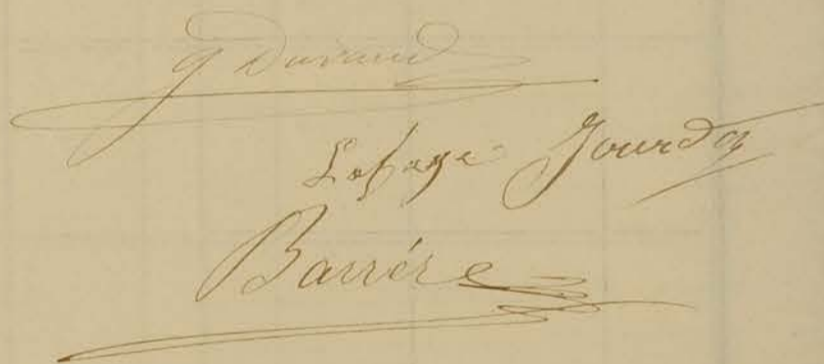 g Durand
Lafage Jourdan
Barrère